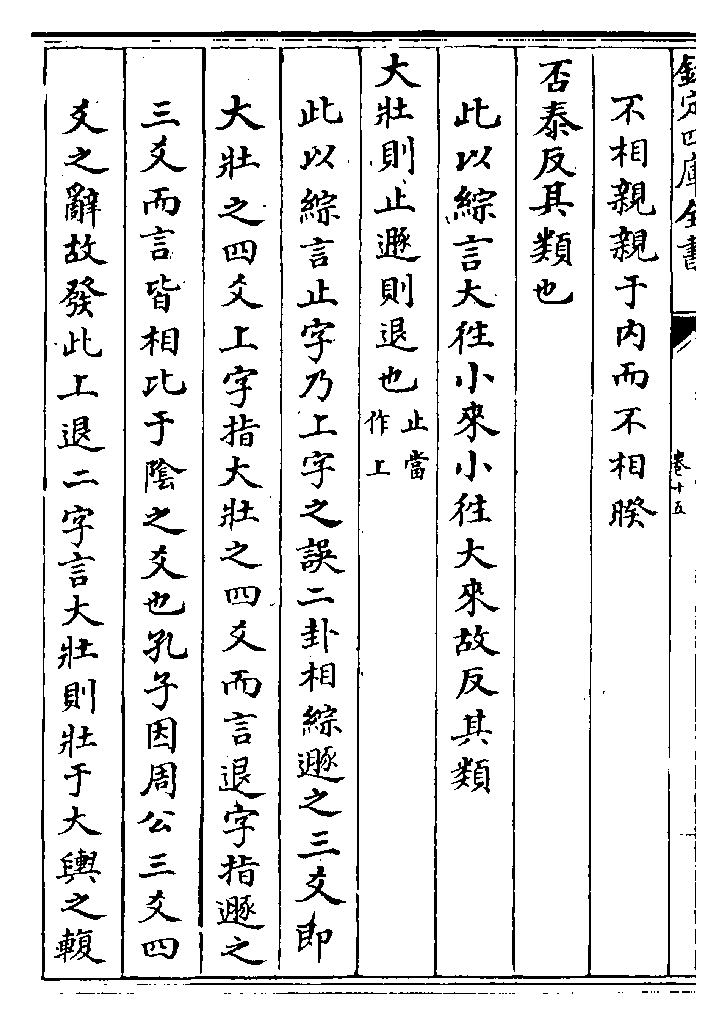 欽定四庫全書
卷十五
不相親親于内而不相睽
否泰反其類也
此以綜言大往小來小往大來故反其類
大壯則止遯則退也止當作上
此以綜言止字乃上字之誤二卦相綜遯之三爻即
大壯之四爻上字指大壯之四爻而言退字指遯之
三爻而言皆相比于陰之爻也孔子因周公三爻四
爻之辭故發此上退二字言大壯則壯于大輿之輹